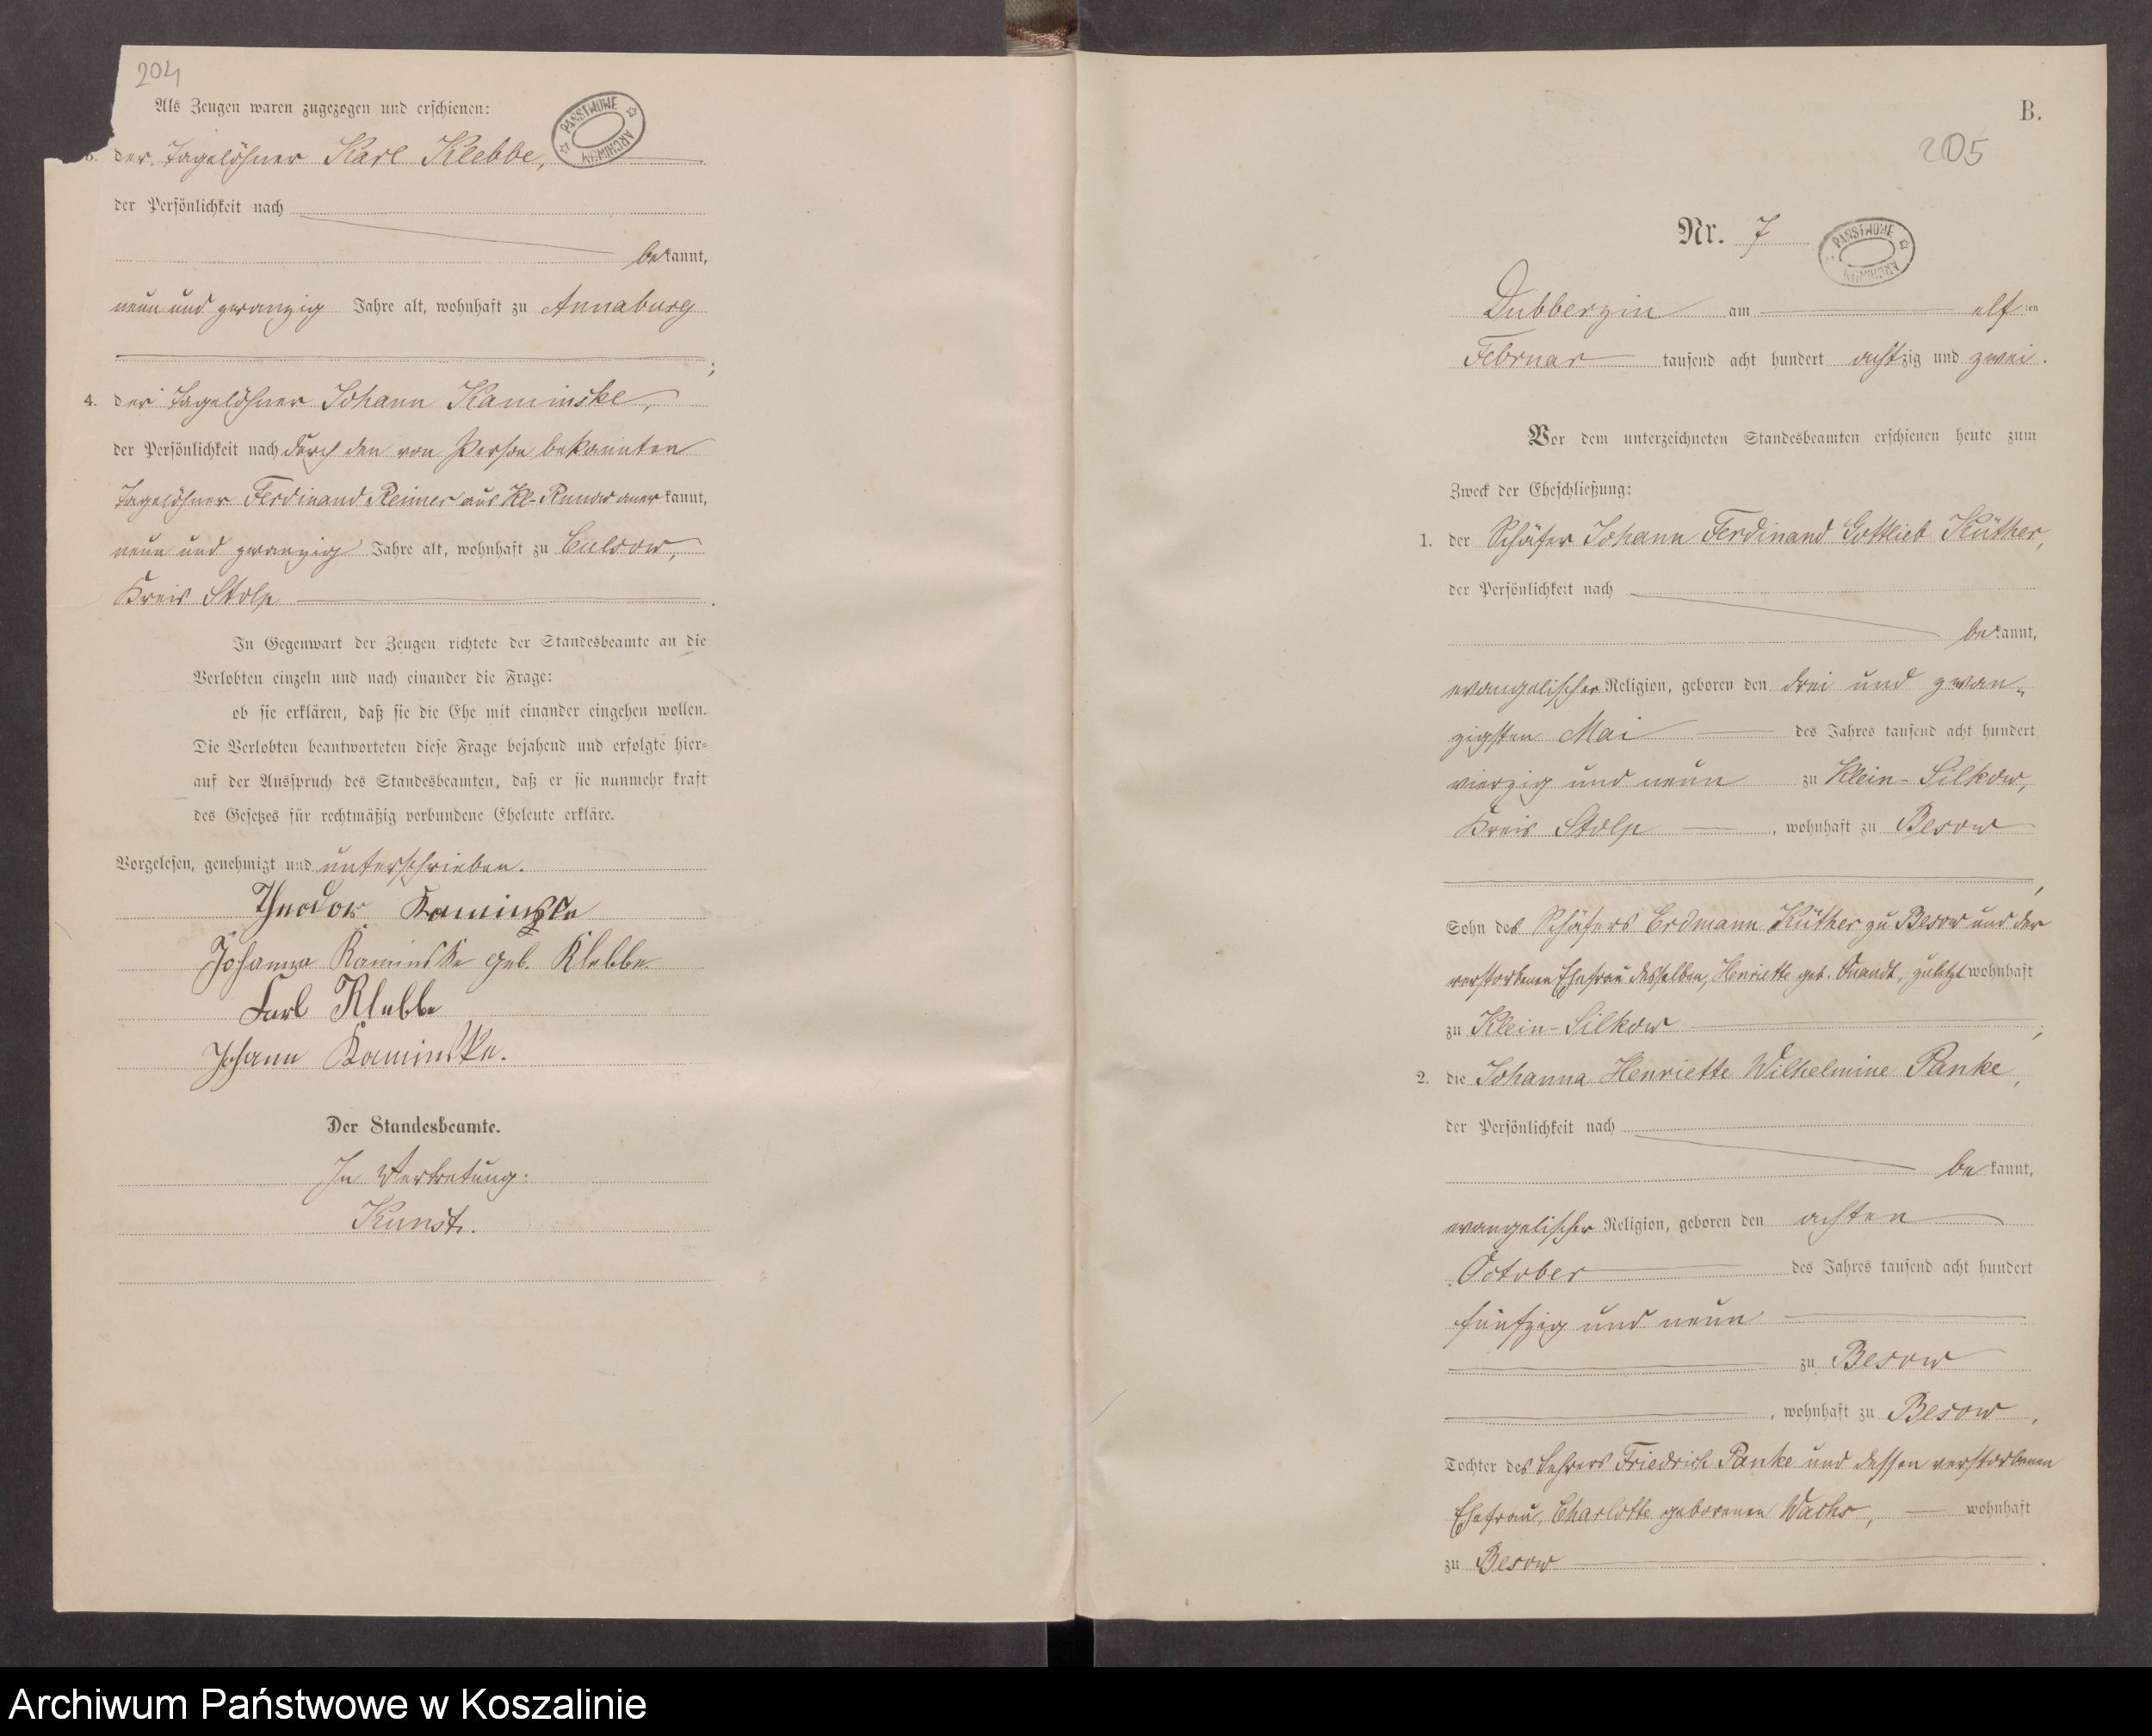 204
Als Zeugen waren zugezogen und erschienen:
PAŃSTWOWE ARCHIWUM
3. der Tagelöhner Karl Klebbe,
der Persönlichkeit nach
bekannt,
neun und zwanzig Jahre alt, wohnhaft zu Annaburg
;
4. der Tagelöhner Johann Kaminske,
der Persönlichkeit nach durch den von Person bekannten
Tagelöhner Ferdinand Reimer aus Kl-Runow anerkannt,
neun und zwanzig Jahre alt, wohnhaft zu Culsow,
Kreis Stolp.
In Gegenwart der Zeugen richtete der Standesbeamte an die
Verlobten einzeln und nach einander die Frage:
ob sie erklären, daß sie die Ehe mit einander eingehen wollen.
Die Verlobten beantworteten diese Frage bejahend und erfolgte hier-
auf der Ausspruch des Standesbeamten, daß er sie nunmehr kraft
des Gesetzes für rechtmäßig verbundene Eheleute erkläre.
Vorgelesen, genehmigt und unterschrieben.
Theodor Kaminske
Johanna Kaminske geb. Klebbe
Carl Klebbe
Johann Kaminske.
Der Standesbeamte.
In Vertretung:
Kunst.
B.
205
Nr. 7
PAŃSTWOWE ARCHIWUM
Dubberzin am elften
Februar tausend acht hundert achtzig und zwei.
Vor dem unterzeichneten Standesbeamten erschienen heute zum
Zweck der Eheschließung:
1. der Schäfer Johann Ferdinand Gottlieb Küther,
der Persönlichkeit nach
bekannt,
evangelischer Religion, geboren den drei und zwan-
zigsten Mai des Jahres tausend acht hundert
vierzig und neun zu Klein-Silkow,
Kreis Stolp, wohnhaft zu Besow
,
Sohn des Schäfers Erdmann Küther zu Besow und der
verstorbenen Ehefrau desselben, Henriette geb. Quandt, zuletzt wohnhaft
zu Klein-Silkow;
2. die Johanna Henriette Wilhelmine Panke,
der Persönlichkeit nach
bekannt,
evangelischer Religion, geboren den achten
October des Jahres tausend acht hundert
fünfzig und neun
zu Besow
, wohnhaft zu Besow,
Tochter des Lehrers Friedrich Panke und dessen verstorbenen
Ehefrau, Charlotte geborenen Wachs, wohnhaft
zu Besow.
Archiwum Państwowe w Koszalinie